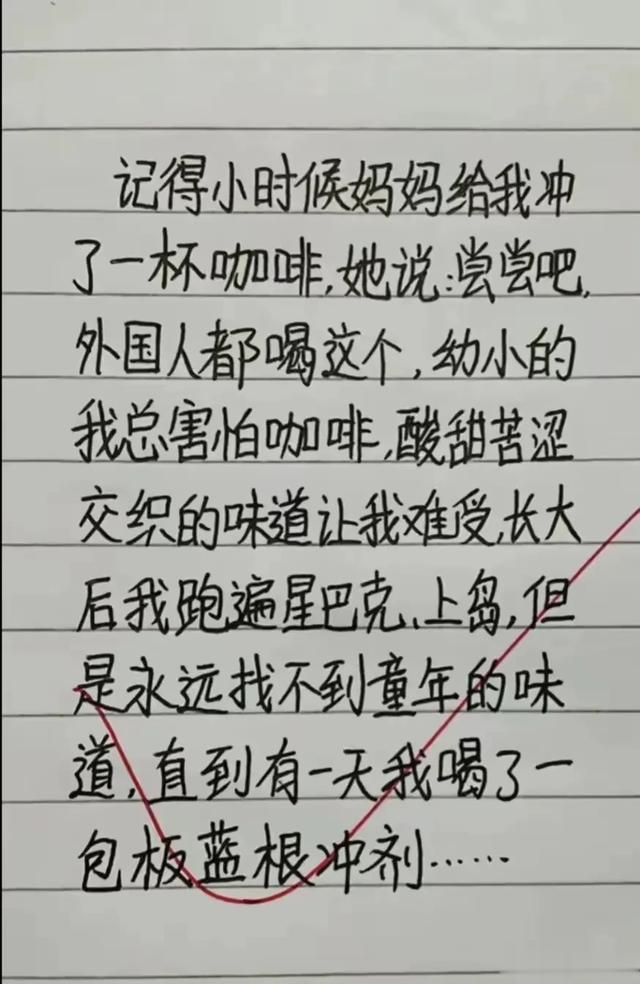 记得小时候妈妈给我冲
了一杯咖啡,她说:尝尝吧,
外国人都喝这个,幼小的
我总害怕咖啡,酸甜苦涩
交织的味道让我难受,长大
后我跑遍星巴克、上岛,但
是永远找不到童年的味
道,直到有一天我喝了一
包板蓝根冲剂……